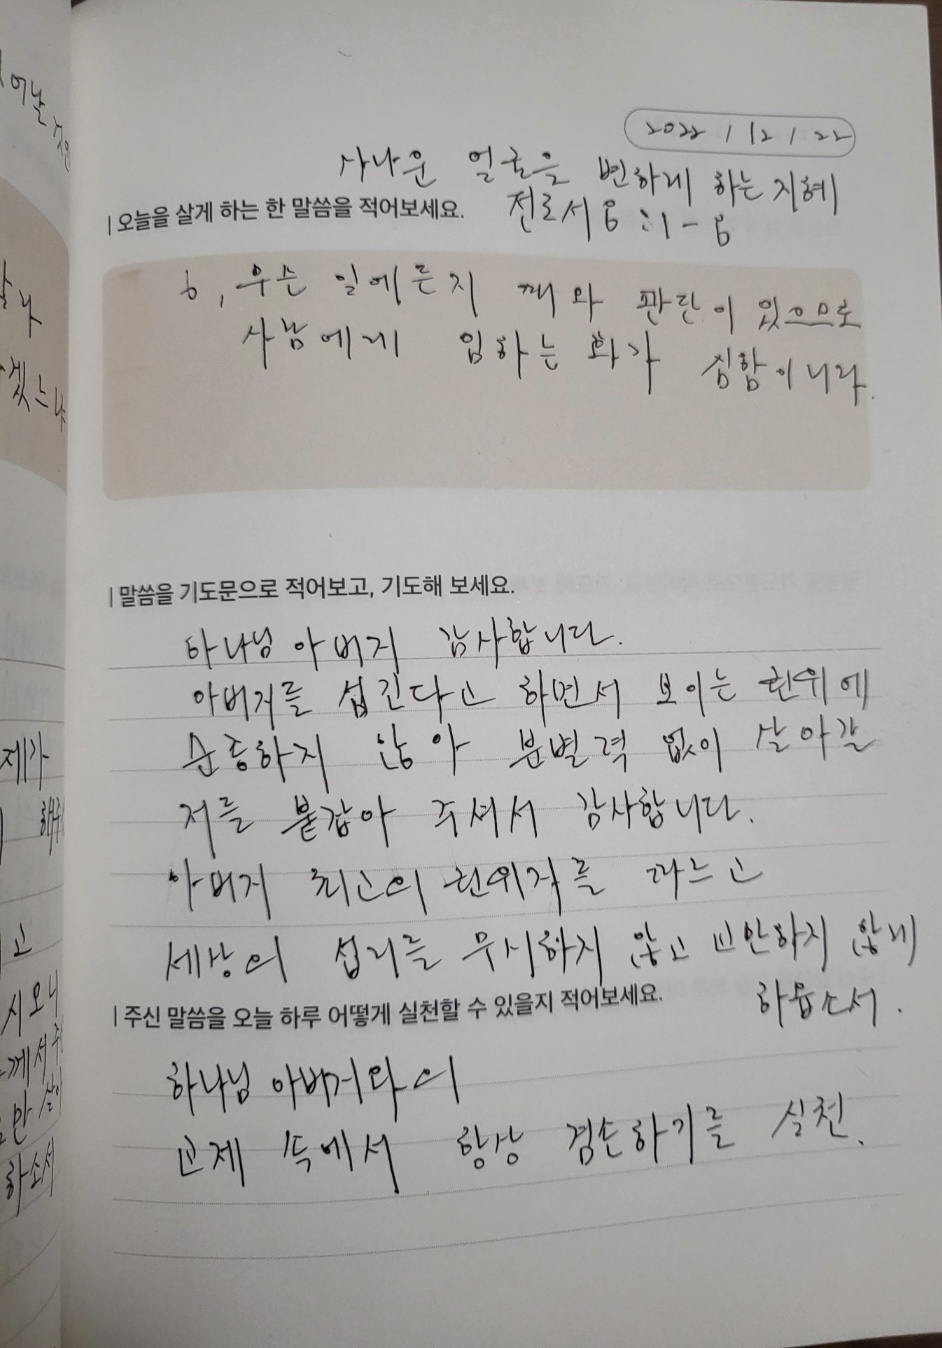 2022 / 12 / 22
사나운 얼굴을 변하게 하는 지혜
| 오늘을 살게 하는 한 말씀을 적어보세요.
전도서 8:1-8
6, 무슨 일에든지 때와 판단이 있으므로
사람에게 임하는 화가 심함이니라.
| 말씀을 기도문으로 적어보고, 기도해 보세요.
하나님 아버지 감사합니다.
아버지를 섬긴다고 하면서 보이는 권위에
순종하지 않아 분별력 없이 살아갈
저를 붙잡아 주셔서 감사합니다.
아버지 최고의 권위자를 따르고
세상의 섭리를 무시하지 않고 교만하지 않게
하옵소서.
| 주신 말씀을 오늘 하루 어떻게 실천할 수 있을지 적어보세요.
하나님 아버지와의
교제 속에서 항상 겸손하기를 실천.
제가
고
시오니
께서 주
만 살
하소서